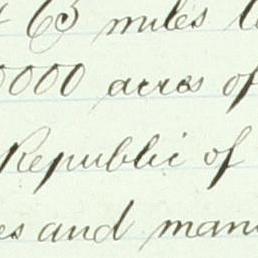 63 miles
0000 acres of
Republic of
es and man